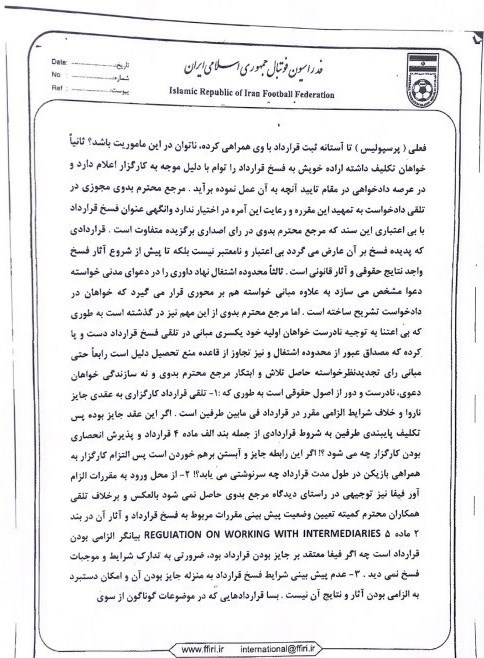 فدراسیون فوتبال جمهوری اسلامی ایران
Islamic Republic of Iran Football Federation
Date: تاریخ:
No : شماره:
Ref : پیوست:
فعلی ( پرسپولیس ) تا آستانه ثبت قرارداد با وی همراهی کرده، ناتوان در این ماموریت باشد؟ ثانیاً
خواهان تکلیف داشته اراده خویش به فسخ قرارداد را توام با دلیل موجه به کارگزار اعلام دارد و
در عرصه دادخواهی در مقام تایید آنچه به آن عمل نموده برآید . مرجع محترم بدوی مجوزی در
تلقی دادخواست به تمهید این مقرره و رعایت این آمره در اختیار ندارد وانگهی عنوان فسخ قرارداد
با بی اعتباری این سند که مرجع محترم بدوی در رای اصداری برگزیده متفاوت است . قراردادی
که پدیده فسخ بر آن عارض می گردد بی اعتبار و نامعتبر نیست بلکه تا پیش از شروع آثار فسخ
واجد نتایج حقوقی و آثار قانونی است . ثالثاً محدوده اشتغال نهاد داوری را در دعوای مدنی خواسته
دعوا مشخص می سازد به علاوه مبانی خواسته هم بر محوری قرار می گیرد که خواهان در
دادخواست تشریح ساخته است . اما مرجع محترم بدوی از این مهم نیز در گذشته است به طوری
که بی اعتنا به توجیه نادرست خواهان اولیه خود یکسری مبانی در تلقی فسخ قرارداد دست و پا
کرده که مصداق عبور از محدوده اشتغال و نیز تجاوز از قاعده منع تحصیل دلیل است رابعاً حتی
مبانی رای تجدیدنظرخواسته حاصل تلاش و ابتکار مرجع محترم بدوی و نه سازندگی خواهان
دعوی، نادرست و دور از اصول حقوقی است به طوری که :۱- تلقی قرارداد کارگزاری به عقدی جایز
ناروا و خلاف شرایط الزامی مقرر در قرارداد فی مابین طرفین است . اگر این عقد جایز بوده پس
تکلیف پایبندی طرفین به شروط قراردادی از جمله بند الف ماده ۴ قرارداد و پذیرش انحصاری
بودن کارگزار چه می شود ؟! اگر این رابطه جایز و آبستن برهم خوردن است پس التزام کارگزار به
همراهی بازیکن در طول مدت قرارداد چه سرنوشتی می یابد؟! ۲- از محل ورود به مقررات الزام
آور فیفا نیز توجیهی در راستای دیدگاه مرجع بدوی حاصل نمی شود بالعکس و برخلاف تلقی
همکاران محترم کمیته تعیین وضعیت پیش بینی مقررات مربوط به فسخ قرارداد و آثار آن در بند
۲ ماده ۵ REGUIATION ON WORKING WITH INTERMEDIARIES بیانگر الزامی بودن
قرارداد است چه اگر فیفا معتقد بر جایز بودن قرارداد بود، ضرورتی به تدارک شرایط و موجبات
فسخ نمی دید . ۳- عدم پیش بینی شرایط فسخ قرارداد به منزله جایز بودن آن و امکان دستبرد
به الزامی بودن آثار و نتایج آن نیست . بسا قراردادهایی که در موضوعات گوناگون از سوی
www.ffiri.ir international@ffiri.ir